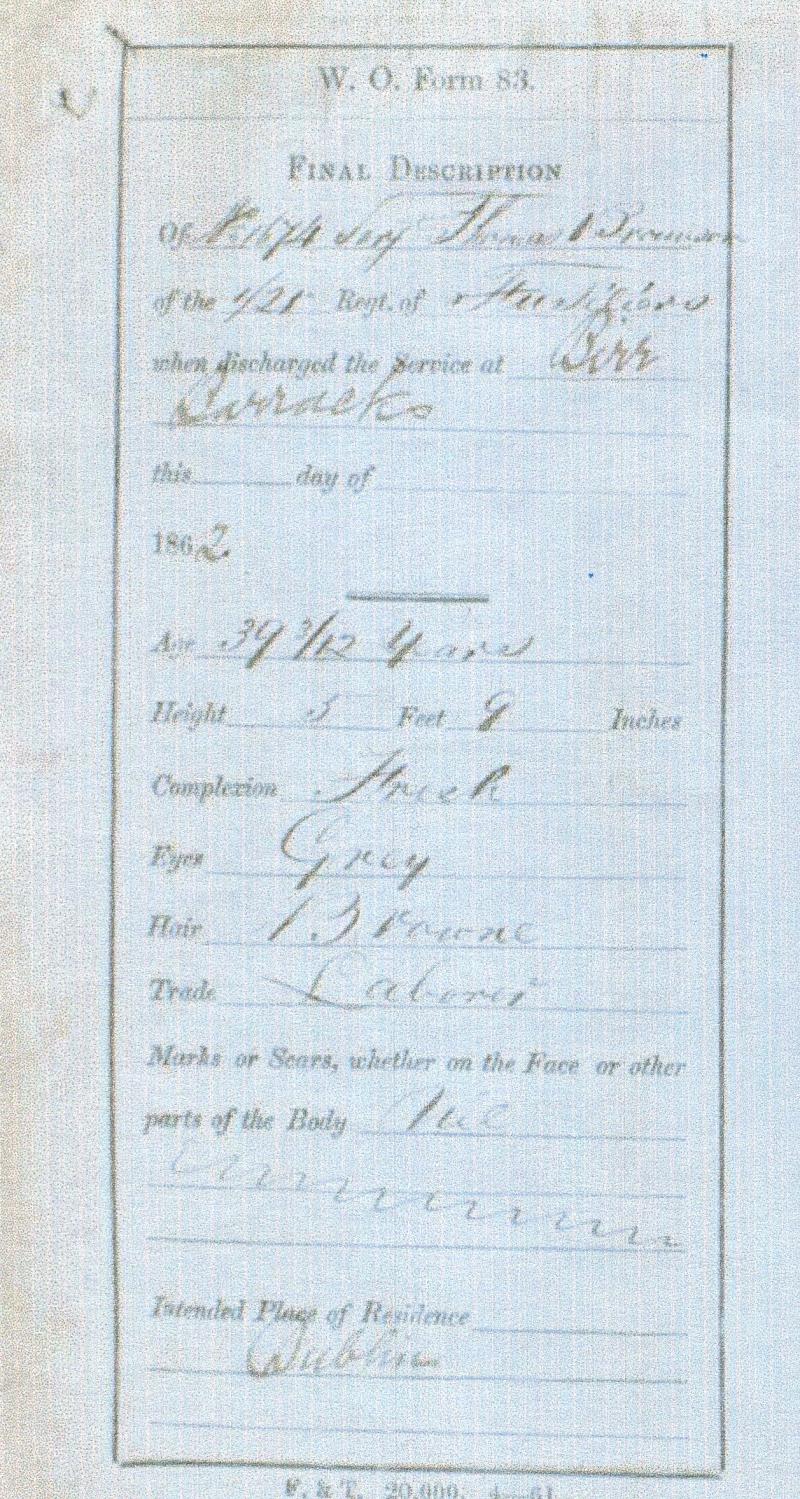 W. O. Form 83.
FINAL DESCRIPTION
Of No 1674 Serj Thomas Brownson
of the 1/21st Regt. of Fusiliers
when discharged the Service at Birr
Barracks
this day of
1862
Age 39 3/12 Years
Height 5 Feet 8 Inches
Complexion Fresh
Eyes Grey
Hair Browne
Trade Laborer
Marks or Scars, whether on the Face or other
parts of the Body Nil
Intended Place of Residence
Dublin
F. & T. 20,000. 4—61